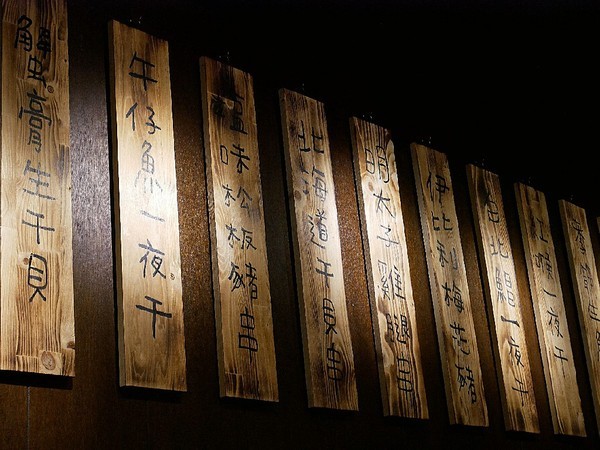 蟹膏生干貝
午仔魚一夜干
鹽味松板豬串
北海道干貝串
明太子雞腿串
伊比利梅花豬
一夜干
一夜干